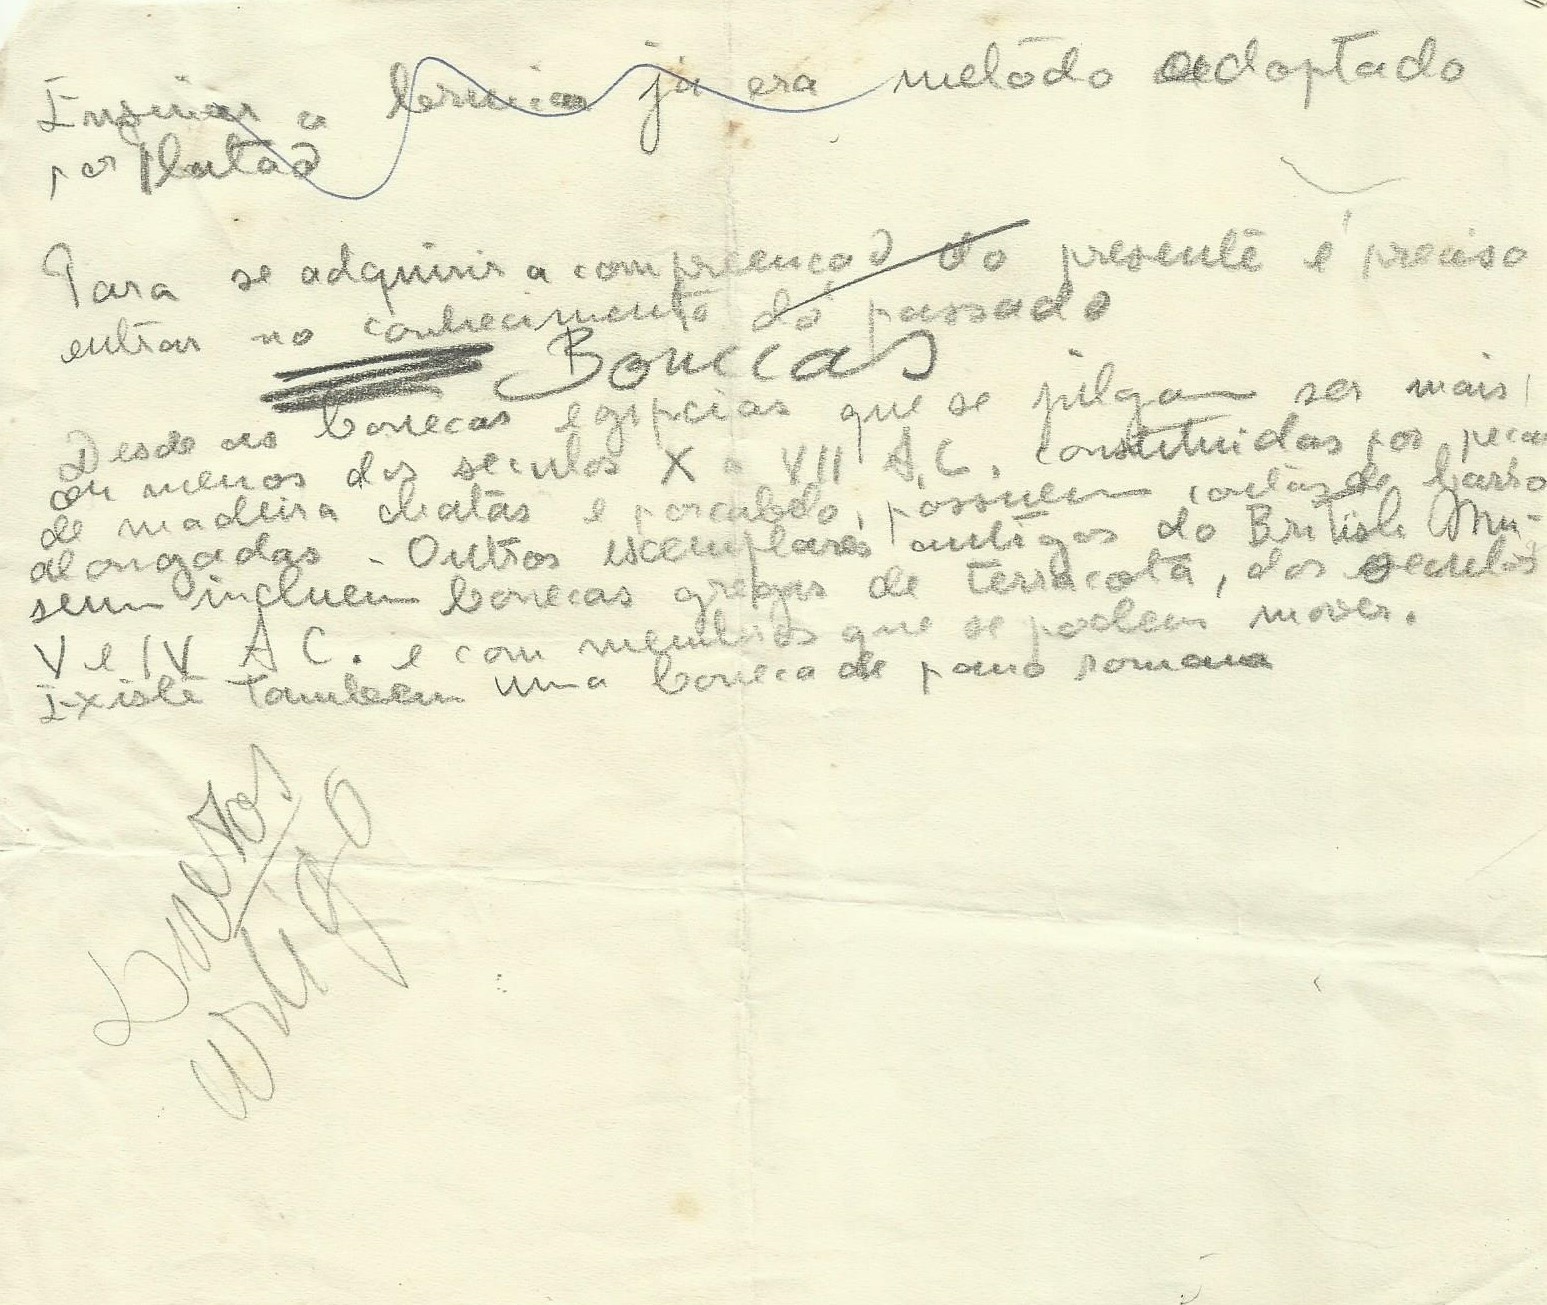 Ensinar a b já era metôdo adoptado
por Platão
Para se adquirir a compreençaõ do presente é preciso
entrar no conhecimento do passado
Bonecas
Desde as bonecas egipcias que se julgam ser mais
ou menos dos seculos X a VII A.C. constituidas por peças
de madeira chatas e , possuem contas de barro
alongadas. Outros exemplares antigos do British Mu-
seum incluem bonecas gregas de terracota, dos seculos
V e IV A C. e com membros que se podem mover.
Existe tambem uma boneca de pano romana